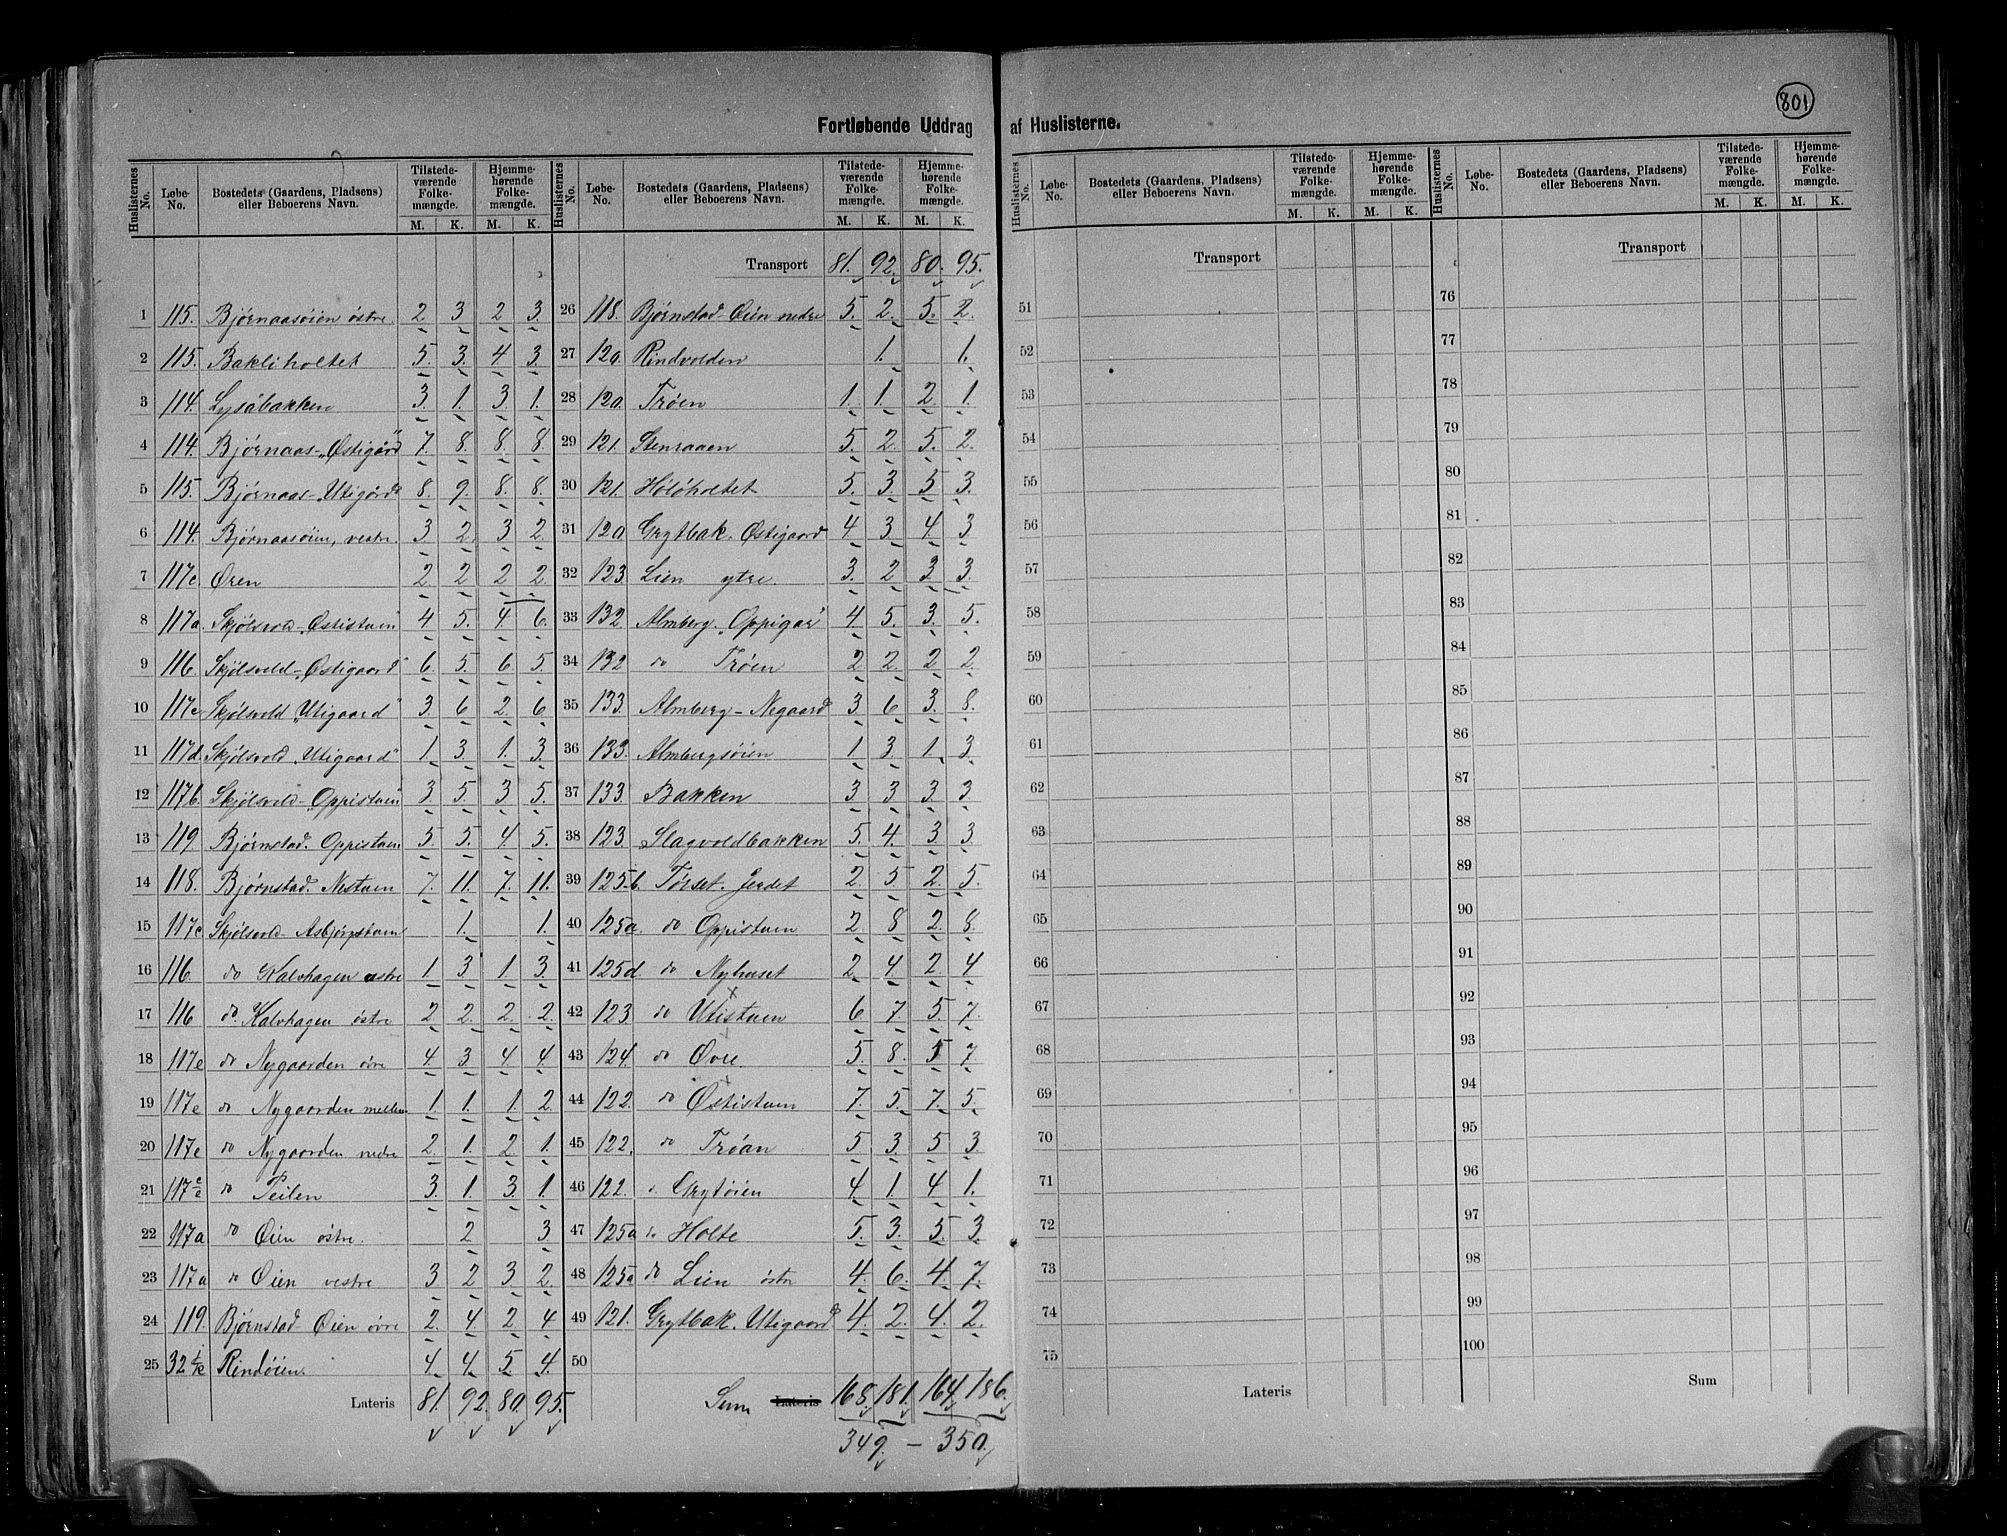 801
Fortløbende Uddrag af Huslisterne.
Huslisternes No. Løbe-No. Bostedets (Gaardens, Pladsens) eller Beboerens Navn. Tilstedeværende Folkemængde. M. K. Hjemmehørende Folkemængde. M. K.
1 115. Bjørnaasøien østre. 2 3 2 3.
2 115. Bakliholtet 5. 3. 4 3.
3 114. Lysåbakken 3. 1. 3. 1.
4 114. Bjørnaas-„Østigård" 7. 8. 8. 8.
5 115. Bjørnaas-„Utigård" 8. 9. 8. 8.
6 114. Bjørnaasøien, vestre. 3 2. 3 2.
7 117c. Øren 2 2 2 2.
8 117a. Skjølsvold-„Østistuen" 4 5. 4 6.
9 116. Skjølsvold-„Østigaard" 6. 5. 6 5.
10 117c Skjølsvold „Utigaard" 3. 6 2. 6
11 117d. Skjølsvold „Utigaard" 1 3. 1. 3.
12 117b. Skjølsvold-„Oppistuen" 3. 5. 3 5.
13 119. Bjørnstad. Oppistuen 5. 5. 4 5.
14 118. Bjørnstad. Nestuen 7. 11. 7. 11.
15 117c Skjølsvold- Asbjørnstuen 1. 1.
16 116 do Kalvhagen østre 1. 3 1. 3.
17 116 do. Kalvhagen østre 2 2. 2. 2.
18 117e do Nygaarden øvre 4. 3 4. 4
19 117e do Nygaarden mellem 1. 1. 1. 2
20 117e do Nygaarden nedre 2. 1. 2. 1.
21 117 do Teilen 3. 1. 3. 1.
22 117a do Øien østre. 2 3.
23 117a do Øien vestre 3 2 3 2.
24 119. Bjørnstad- Øien øvre 2. 4 2 4
25 32 Rindøien. 4. 4 5 4.
Lateris 81. 92. 80. 95.
Huslisternes No. Løbe-No. Bostedets (Gaardens, Pladsens) eller Beboerens Navn. Tilstedeværende Folkemængde. M. K. Hjemmehørende Folkemængde. M. K.
Transport 81. 92. 80. 95.
26 118. Bjørnstad-Øien nedre 5. 2. 5. 2.
27 120. Rindvolden 1. 1.
28 120. Trøen 1. 1. 2. 1
29 121. Stenraaen 5. 2. 5. 2.
30 121. Hølöholtet 5. 3. 5 3.
31 120 Grytbak. Østigaard 4 3. 4. 3
32 123. Lien ytre 3. 2 3 3.
33 132. Almberg. „Oppigar" 4 5. 3. 5.
34 132 do Trøen 2 2. 2 2.
35 133. Almberg-Negaard 3 6 3. 8.
36 133. Almbergsøien 1 3. 1. 3.
37 133. Bakken 3 3 3. 3
38 123. Slagvoldbakken 5. 4. 3 3.
39 125b. Tørset. Jerdet 2. 5 2. 5.
40 125a. do Oppistuen 2. 8 2. 8.
41 125d. do Nyhuset 2 4 2. 4
42 123 do Utistuen 6 7. 5. 7.
43 124. do Øvre. 5. 8. 5 7
44 122. do Østistuen 7. 5. 7. 5.
45 122. do Trøan 5 3. 5 3
46 122. do Grytøien 4 1. 4 1.
47 125a do Holte 5. 3. 5. 3
48 125a do Lien østr 4. 6. 4. 7.
49 121. Grytbak. Utigaard 4. 2. 4. 2.
50
Sum Lateris 168. 181. 164. 186.
349. — 350.
Huslisternes No. Løbe-No. Bostedets (Gaardens, Pladsens) eller Beboerens Navn. Tilstedeværende Folkemængde. M. K. Hjemmehørende Folkemængde. M. K.
Transport
51
52
53
54
55
56
57
58
59
60
61
62
63
64
65
66
67
68
69
70
71
72
73
74
75
Lateris
Huslisternes No. Løbe-No. Bostedets (Gaardens, Pladsens) eller Beboerens Navn. Tilstedeværende Folkemængde. M. K. Hjemmehørende Folkemængde. M. K.
Transport
76
77
78
79
80
81
82
83
84
85
86
87
88
89
90
91
92
93
94
95
96
97
98
99
100
Sum